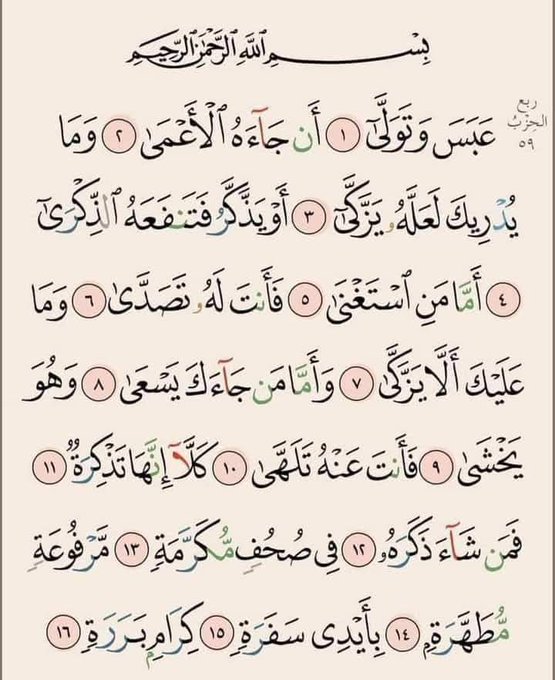 بِسْمِ ٱللَّهِ ٱلرَّحْمَٰنِ ٱلرَّحِيمِ
رُبع
الحِزْب
٥٩
عَبَسَ وَتَوَلَّىٰٓ ١ أَن جَآءَهُ ٱلْأَعْمَىٰ ٢ وَمَا
يُدْرِيكَ لَعَلَّهُۥ يَزَّكَّىٰٓ ٣ أَوْ يَذَّكَّرُ فَتَنفَعَهُ ٱلذِّكْرَىٰٓ
٤ أَمَّا مَنِ ٱسْتَغْنَىٰ ٥ فَأَنتَ لَهُۥ تَصَدَّىٰ ٦ وَمَا
عَلَيْكَ أَلَّا يَزَّكَّىٰ ٧ وَأَمَّا مَن جَآءَكَ يَسْعَىٰ ٨ وَهُوَ
يَخْشَىٰ ٩ فَأَنتَ عَنْهُ تَلَهَّىٰ ١٠ كَلَّآ إِنَّهَا تَذْكِرَةٌ ١١
فَمَن شَآءَ ذَكَرَهُۥ ١٢ فِى صُحُفٍ مُّكَرَّمَةٍ ١٣ مَّرْفُوعَةٍ
مُّطَهَّرَةٍۭ ١٤ بِأَيْدِى سَفَرَةٍ ١٥ كِرَامٍۭ بَرَرَةٍ ١٦